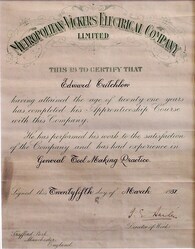 METROPOLITAN-VICKERS ELECTRICAL COMPANY
LIMITED
THIS IS TO CERTIFY THAT
Edward Critchlow
having attained the age of twenty one years
has completed his Apprenticeship Course
with this Company.
He has performed his work to the satisfaction
of the Company and has had experience in
General Tool Making Practice.
Signed this Twenty fifth day of March
Trafford Park
Manchester
England